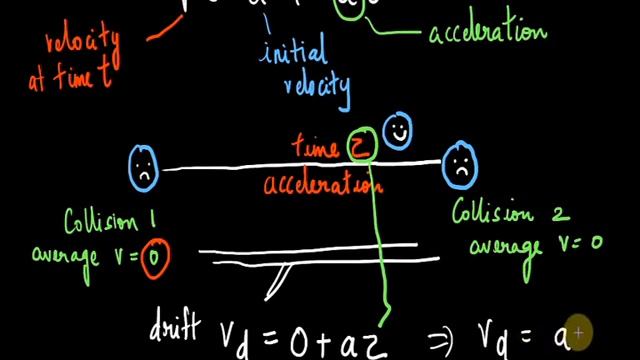 velocity
at time t
initial
velocity
acceleration
time τ
acceleration
Collision 1
average v = 0
Collision 2
average v = 0
drift v_d = 0 + aτ ⇒ v_d = a